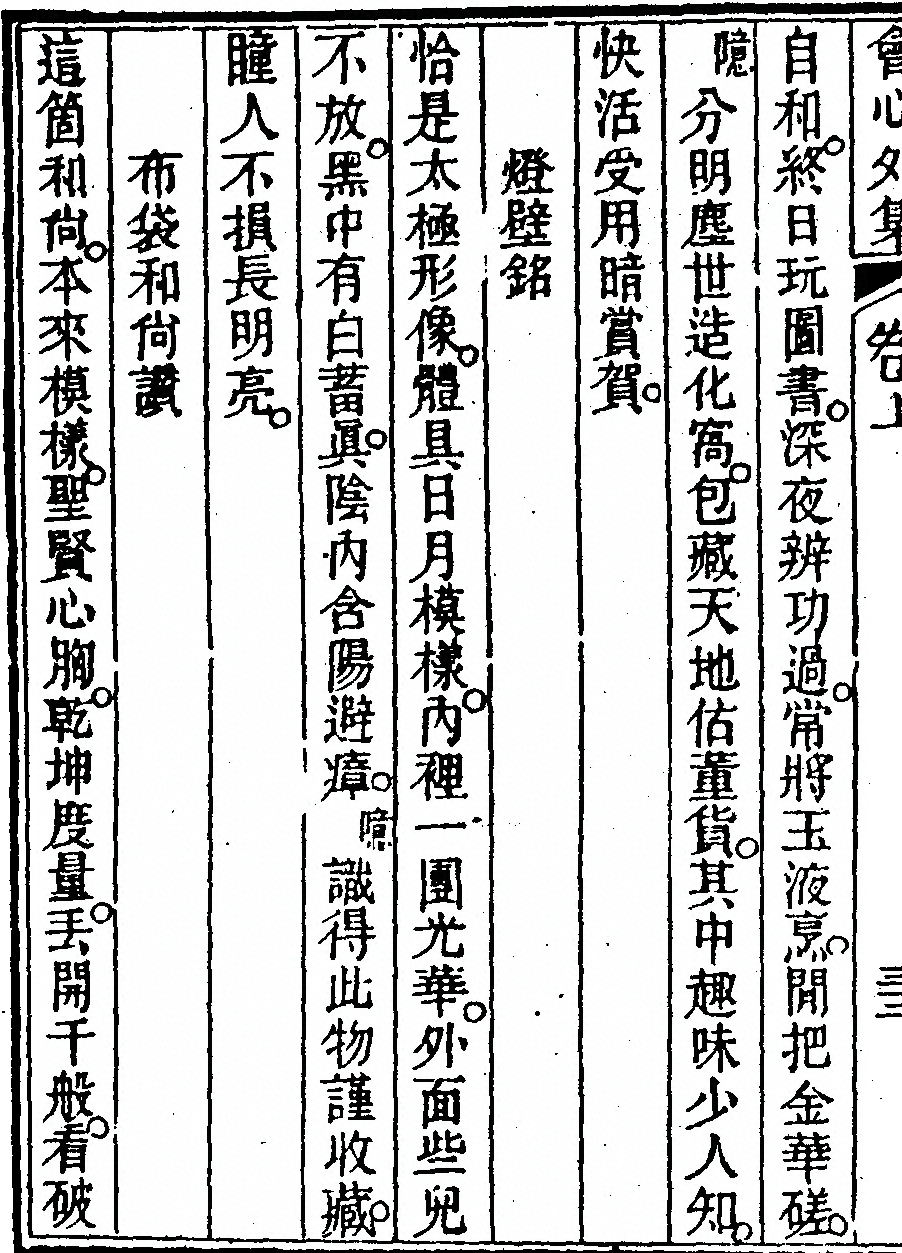 會心外集 卷上 三三
自和。終日玩圖書。深夜辨功過。常將玉液烹。閒把金華磋。
噫分明塵世造化窩。包藏天地估董貨。其中趣味少人知。
快活受用暗賞賀。
燈壁銘
恰是太極形像。體具日月模樣。內裡一團光華。外面些兒
不放。黑中有白蓄眞。陰內含陽避瘴。噫識得此物謹收藏。
瞳人不損長明亮。
布袋和尙讚
這箇和尙。本來模樣。聖賢心胸。乾坤度量。丟開千般。看破